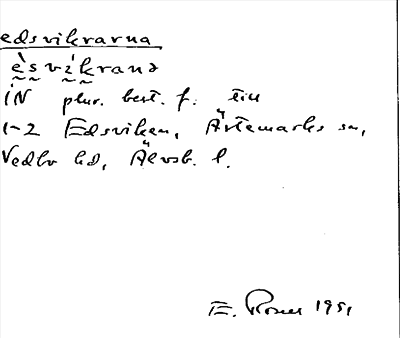 edsvikrarna
ḛ̀s̰vḭ́k̰rana
iN plur. best. f. till
1-2 Edsviken, Ärtemarks sn,
Vedbo hd, Älvsb. l.
E. Rosell 1951